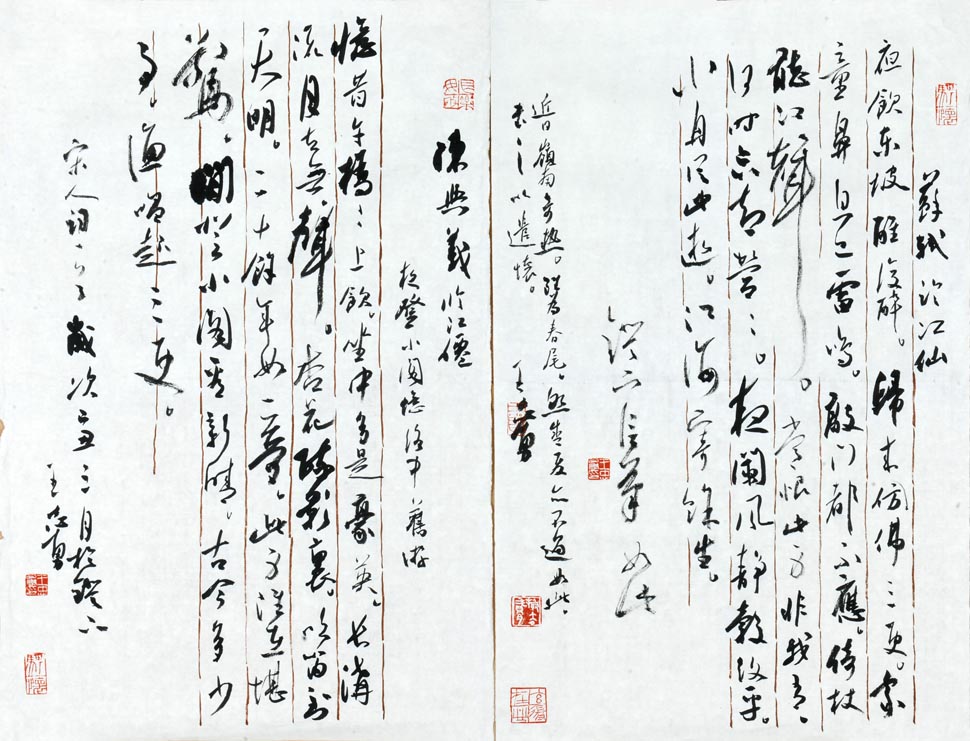 蘇軾 臨江仙
夜飲東坡醒復醉。歸來仿佛三更。家
童鼻息已雷鳴。敲門都不應。倚杖
聽江聲。常恨此身非我有。
何時忘却營々。夜闌風靜縠紋平。
小舟從此逝。江海寄餘生。
燈下信筆如此
近日嶺南奇熱。春尾。然盛夏亦不過如此。
書之以遣懷。 王志勇
陳與義 臨江僊
夜登小閣憶洛中舊游
憶昔午橋々上飲。坐中多是豪英。長溝
流月去無聲。杏花疏影裏。吹笛到
天明。二十餘年如一夢。此身雖在堪
驚。閒登小閣看新晴。古今多少
事。漁唱起三更。
宋人詞 歲次 三月於燈下
王志勇